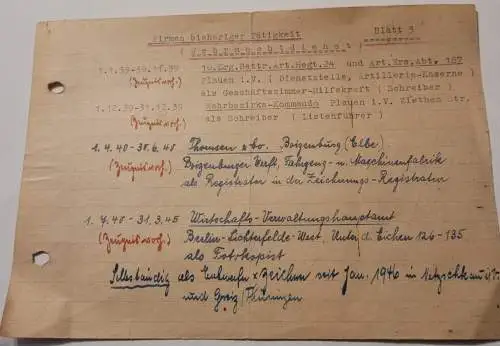 Firmen bisheriger Tätigkeit
Blatt 3
( Wehrmachtdienst )
1.1.39-30.11.39 10.Erg.Battr.Art.Regt.24 und Art.Ers.Abt. 187
(Zeugnis vorh.) Plauen i.V. ( Dienststelle, Artillerie-Kaserne )
als Geschäftszimmer-Hilfskraft ( Schreiber )
1.12.39-31.12.39 Wehrbezirks-Kommando Plauen i.V. Ziethen Str.
(Zeugnis vorh.) als Schreiber ( Listenführer )
1.4.40-30.6.40 Thomsen & Co. Boizenburg (Elbe)
(Zeugnis vorh.) Boizenburger Werft, Fahrzeug- u. Maschinenfabrik
als Registrator in der Zeichnungs-Registratur
1.7.40-31.3.45 Wirtschafts-Verwaltungshauptamt
(Zeugnis vorh.) Berlin-Lichterfelde-West, Unter d. Eichen 126-135
als Fotokopist
Selbständig als seit Jan. 1946 in Netzschkau i.V.
und Greiz/Thüringen